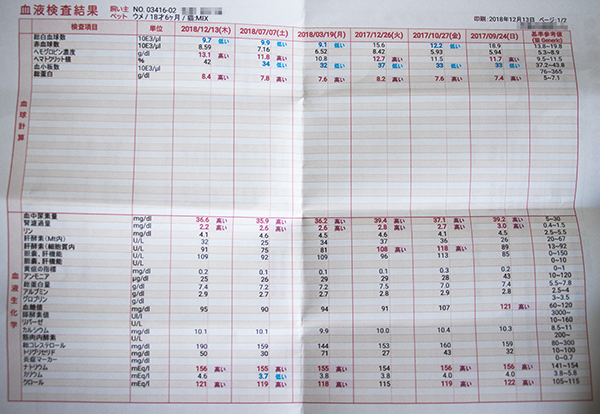 血液検査結果 飼い主 NO. 03416-02
ペット ウメ / 18才6ヶ月 / 猫 MIX
印刷: 2018年12月13日 ページ: 1/2
検査項目 単位 2018/12/13(木) 2018/07/07(土) 2018/03/19(月) 2017/12/26(火) 2017/10/27(金) 2017/09/24(日) 基準参考値 (猫 Generic)
総白血球数 10E3/μl 9.7 低い 9.9 低い 9.1 低い 15.6 12.2 低い 18.9 13.8~19.8
赤血球数 8.59 7.16 6.52 8.42 5.93 5.94 5.3~8.9
ヘモグロビン濃度 g/dl 13.1 高い 11.8 高い 10.8 12.7 高い 11.5 11.7 高い 9.5~11.5
ヘマトクリット積 % 42 34 低い 32 低い 37 低い 33 低い 33 低い 37.2~43.8
血小板数 10E3/μl 76~365
総蛋白 g/dl 8.4 高い 7.8 高い 7.6 高い 8.2 高い 7.6 高い 7.4 高い 5~7.1
血球計算
血中尿素量 mg/dl 36.6 高い 35.9 高い 36.2 高い 39.4 高い 37.1 高い 39.2 高い 5~30
腎濾過量 mg/dl 2.2 高い 2.6 高い 2.6 高い 2.8 高い 2.7 高い 3.0 高い 0.4~1.5
リン mg/dl 4.1 4.6 4.5 4.6 4.1 4.5 2.5~5.5
肝酵素(Mt内) U/L 32 25 34 37 36 26 20~67
肝酵素(細胞質内 U/L 91 75 81 108 高い 118 高い 89 13~92
胆嚢、肝機能 U/L 109 92 109 96 113 85 0~150
胆嚢、肝機能 U/L 0~10
黄疸の指標 mg/dl 0.2 0.1 0.2 0.2 0.2 0.1 0~1
アンモニア μg/dl 25 26 29 29 28 43 10~120
総蛋白量 g/dl 7.4 7.2 7.5 7.5 7.2 7.2 5.5~7.8
アルブミン g/dl 2.9 2.7 2.7 2.8 2.9 2.8 2.5~4
グロブリン g/dl 3~3.5
血糖値 mg/dl 95 90 94 91 107 121 高い 60~120
膵酵素値 U/L 3000~
リパーゼ U/L 10~160
カルシウム mg/dl 10.1 10.1 9.9 10.0 10.4 10.3 8.5~11
筋肉内酵素 U/L 200~
総コレステロール mg/dl 190 159 144 153 160 159 80~300
トリグリセリド mg/dl 50 30 71 27 43 32 10~100
炎症マーカー mg/dl 0~0.7
ナトリウム mEq/l 155 高い 156 高い 155 高い 154 156 高い 156 高い 141~154
カリウム mEq/l 4.6 3.7 低い 3.8 3.8 4.0 4.0 3.8~5.8
クロール mEq/l 121 高い 119 高い 118 高い 115 119 高い 122 高い 105~115
血液生化学